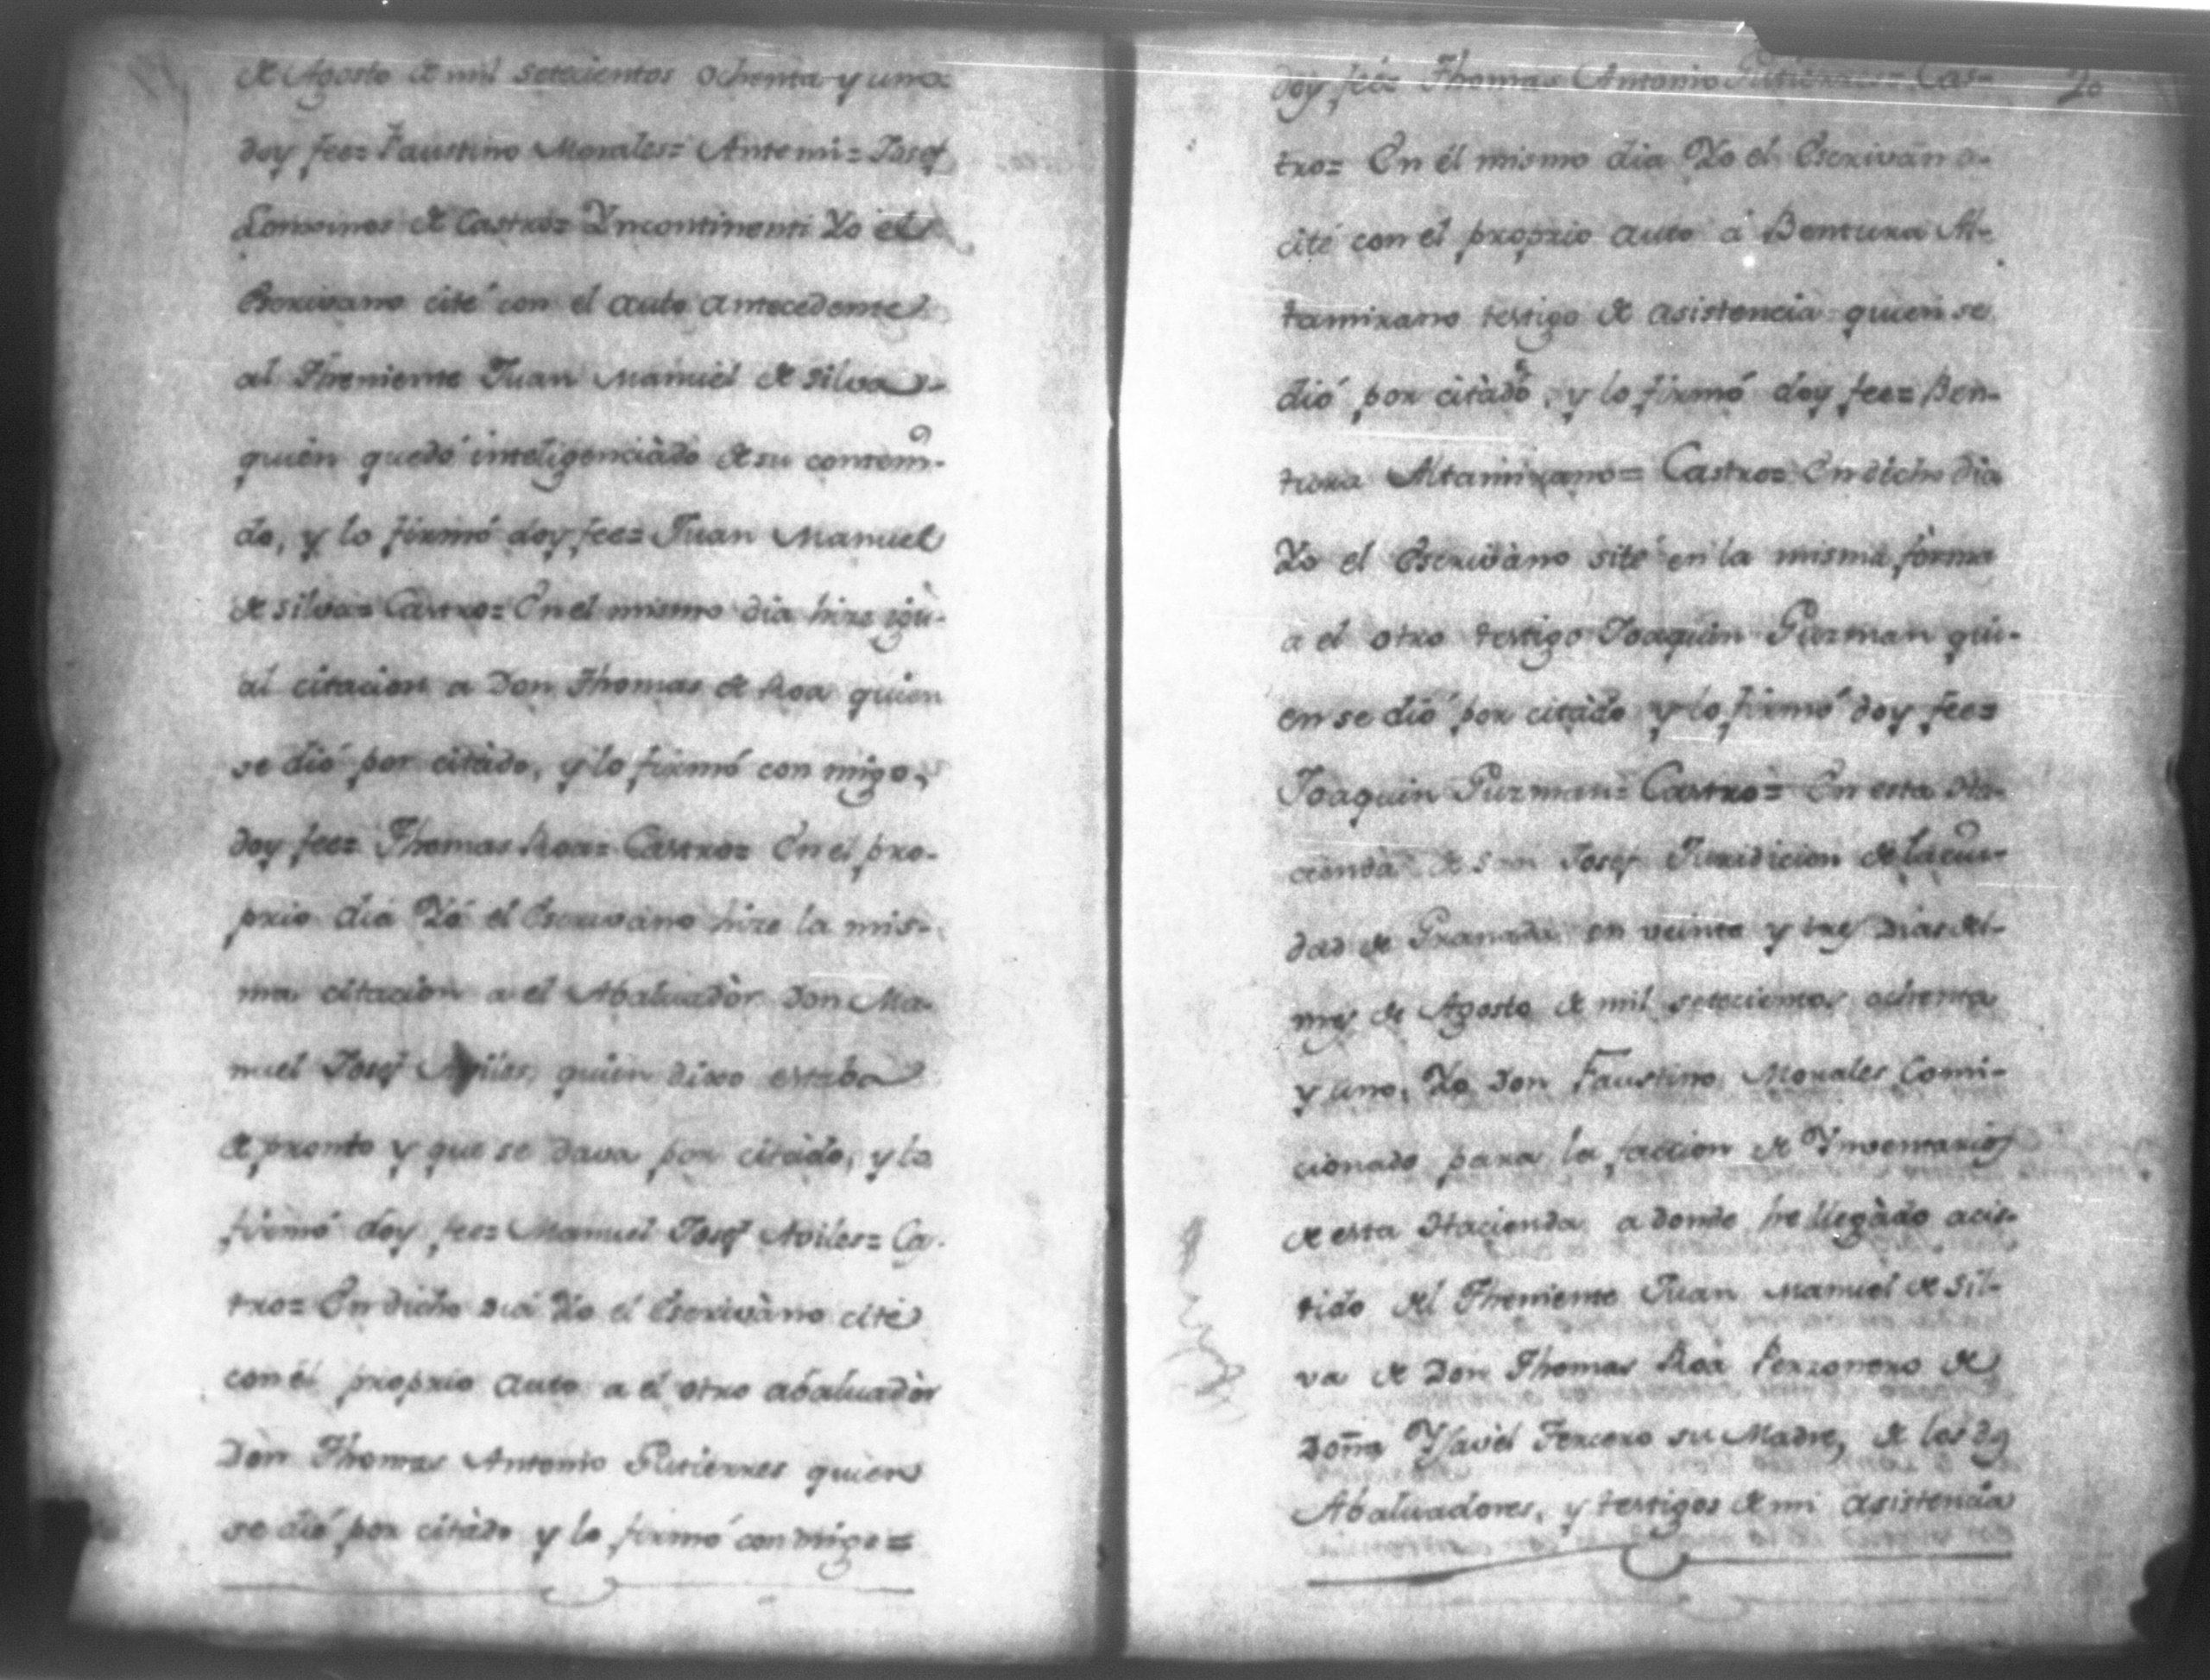 de Agosto de mil setecientos ochenta y uno
doy fee= Faustino Morales= Antemi= Josef
Lonsinos de Castro= Yncontinenti Yo el
Escrivano cité con el auto antecedente
al Theniente Juan Manuel de Silva
quien quedó inteligenciàdo de su conteni-
do, y lo firmó doy fee= Juan Manuel
de Silva= Castro= En el mismo dia hize igù-
al citacion a Don Thomas de Roa quien
se dió por citàdo, y lo firmó con migo,
doy fee= Thomas Roa= Castro= En el pro-
prio dia Yó el Escrivano hize la mis-
ma citacion a el Abaluadòr Don Ma-
nuel Josef Aviles, quien dixo estaba
de pronto y que se dava por citàdo, y lo
firmó doy fee= Manuel Josef Aviles= Ca-
tro= En dicho dia Yo el Escrivàno cité
con él proprio auto a el otro abaluadòr
Don Thomas Antonio Gutierres quien
se dió por citàdo y lo firmó con migo=
20
doy feé= Thomas Antonio Gutierres= Cas-
tro= En él mismo dia Yo el Escrivàno
cité con el proprio auto á Bentura Al-
tamirano testigo de asistencia quien se
dió por citàdo, y lo firmó doy fee= Ben-
tura Altamirano= Castro= En dicho dia
Yo el Escrivàno sité en la misma fòrma
a el otro testigo Joaquin Guzman qui-
en se dió por citàdo y lo firmó doy fee=
Joaquin Guzman= Castro= En esta Ha-
cienda de San Josef Juridicion de la ciu-
dad de Granada en veinte y tres dias del
mes de Agosto de mil setecientos ochenta
y uno, Yo Don Faustino Morales Comi-
cionado para la faccion de Ynventarios
de esta Hacienda a donde he llegàdo acis-
tido del Theniente Juan Manuel de Sil-
va de Don Thomas Roa Perzonero de
Doña Ysavel Fercero su Madre, de los dos
Abaluadores, y testigos de mi asistencia